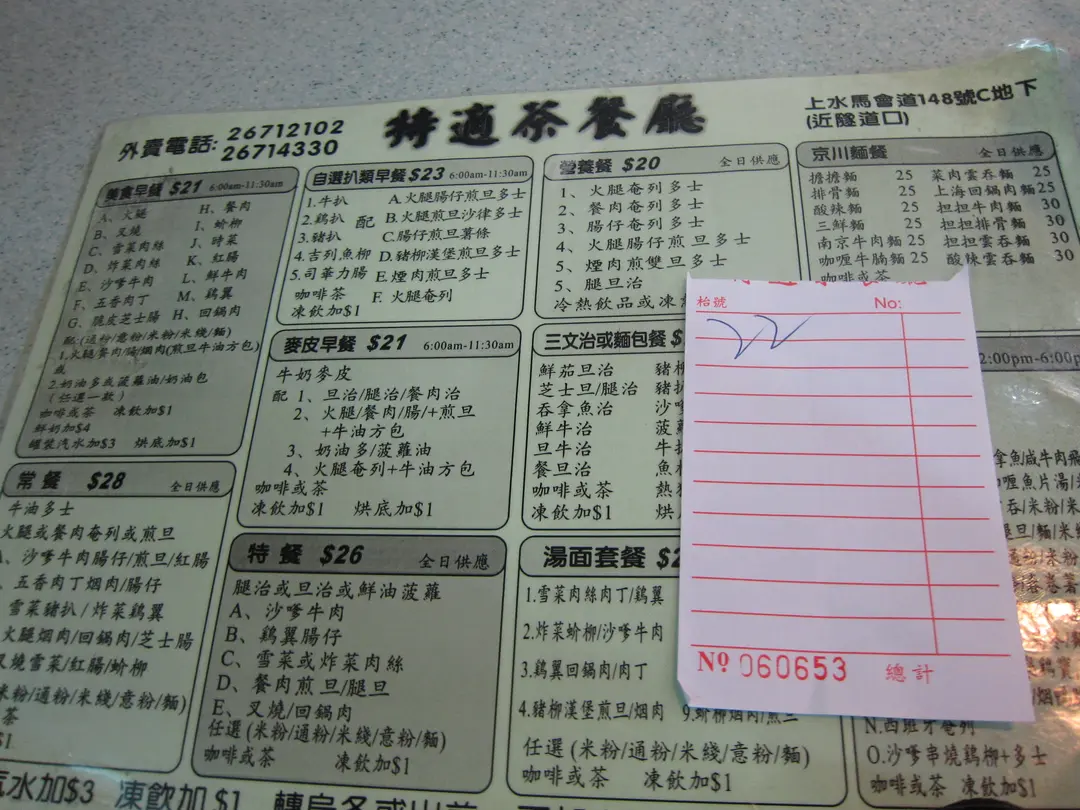 外賣電話: 26712102
26714330
特適茶餐廳
上水馬會道148號C地下
(近隧道口)
美食早餐 $21 6:00am-11:30am
A、火腿
B、叉燒
C、雪菜肉絲
D、炸菜肉絲
E、沙爹牛肉
F、五香肉丁
G、脆皮芝士腸
H、餐肉
I、蚧柳
J、時菜
K、紅腸
L、鮮牛肉
M、鷄翼
H、回鍋肉
配:(通粉/意粉/米粉/米綫/麵)
1.火腿/餐肉/腸/烟肉(煎旦牛油方包)
或
2.奶油多或菠蘿油/奶油包
(任選一款)
咖啡或茶 凍飲加$1
鮮奶加$4
罐裝汽水加$3 烘底加$1
自選扒類早餐 $23 6:00am-11:30am
1.牛扒
2.鷄扒 配
3.豬扒
4.吉列魚柳
5.司華力腸
咖啡茶
凍飲加$1
A.火腿腸仔煎旦多士
B.火腿煎旦沙律多士
C.腸仔煎旦薯條
D.豬柳漢堡煎旦多士
E.煙肉煎旦多士
F.火腿奄列
營養餐 $20 全日供應
1、火腿奄列多士
2、餐肉奄列多士
3、腸仔奄列多士
4、火腿腸仔煎旦多士
5、煙肉煎雙旦多士
5、腿旦治
冷熱飲品或凍
京川麵餐 全日供應
擔擔麵 25 菜肉雲吞麵 25
排骨麵 25 上海回鍋肉麵25
酸辣麵 25 担担牛肉麵 30
三鮮麵 25 担担排骨麵 30
南京牛肉麵 25 担担雲吞麵 30
咖喱牛腩麵 25 酸辣雲吞麵 30
咖啡或茶
麥皮早餐 $21 6:00am-11:30am
牛奶麥皮
配 1、旦治/腿治/餐肉治
2、火腿/餐肉/腸/+煎旦
+牛油方包
3、奶油多/菠蘿油
4、火腿奄列+牛油方包
咖啡或茶
凍飲加$1 烘底加$1
三文治或麵包餐 $
鮮茄旦治 豬
芝士旦/腿治 豬
吞拿魚治 沙
鮮牛治 菠
旦牛治 牛
餐旦治 魚
咖啡或茶 熱
凍飲加$1 烘
2:00pm-6:00p
常餐 $28 全日供應
牛油多士
火腿或餐肉奄列或煎旦
、沙爹牛肉腸仔/煎旦/紅腸
、五香肉丁烟肉/腸仔
雪菜豬扒/炸菜鷄翼
火腿烟肉/回鍋肉/芝士腸
叉燒雪菜/紅腸/蚧柳
米粉/通粉/米綫/意粉/麵)
茶
$1
特餐 $26 全日供應
腿治或旦治或鮮油菠蘿
A、沙爹牛肉
B、鷄翼腸仔
C、雪菜或炸菜肉絲
D、餐肉煎旦/腿旦
E、叉燒/回鍋肉
任選(米粉/通粉/米綫/意粉/麵)
咖啡或茶 凍飲加$1
湯面套餐 $2
1.雪菜肉絲肉丁/鷄翼
2.炸菜蚧柳/沙爹牛肉
3.鷄翼回鍋肉/肉丁
4.豬柳漢堡煎旦/烟肉 9.蚧柳烟肉/煎旦
任選(米粉/通粉/米綫/意粉/麵)
咖啡或茶 凍飲加$1
N.西班牙奄列
O.沙爹串燒鷄柳+多士
咖啡或茶 凍飲加$1
汽水加$3 凍飲加$1
枱號 No:
22
Nº 060653 總計